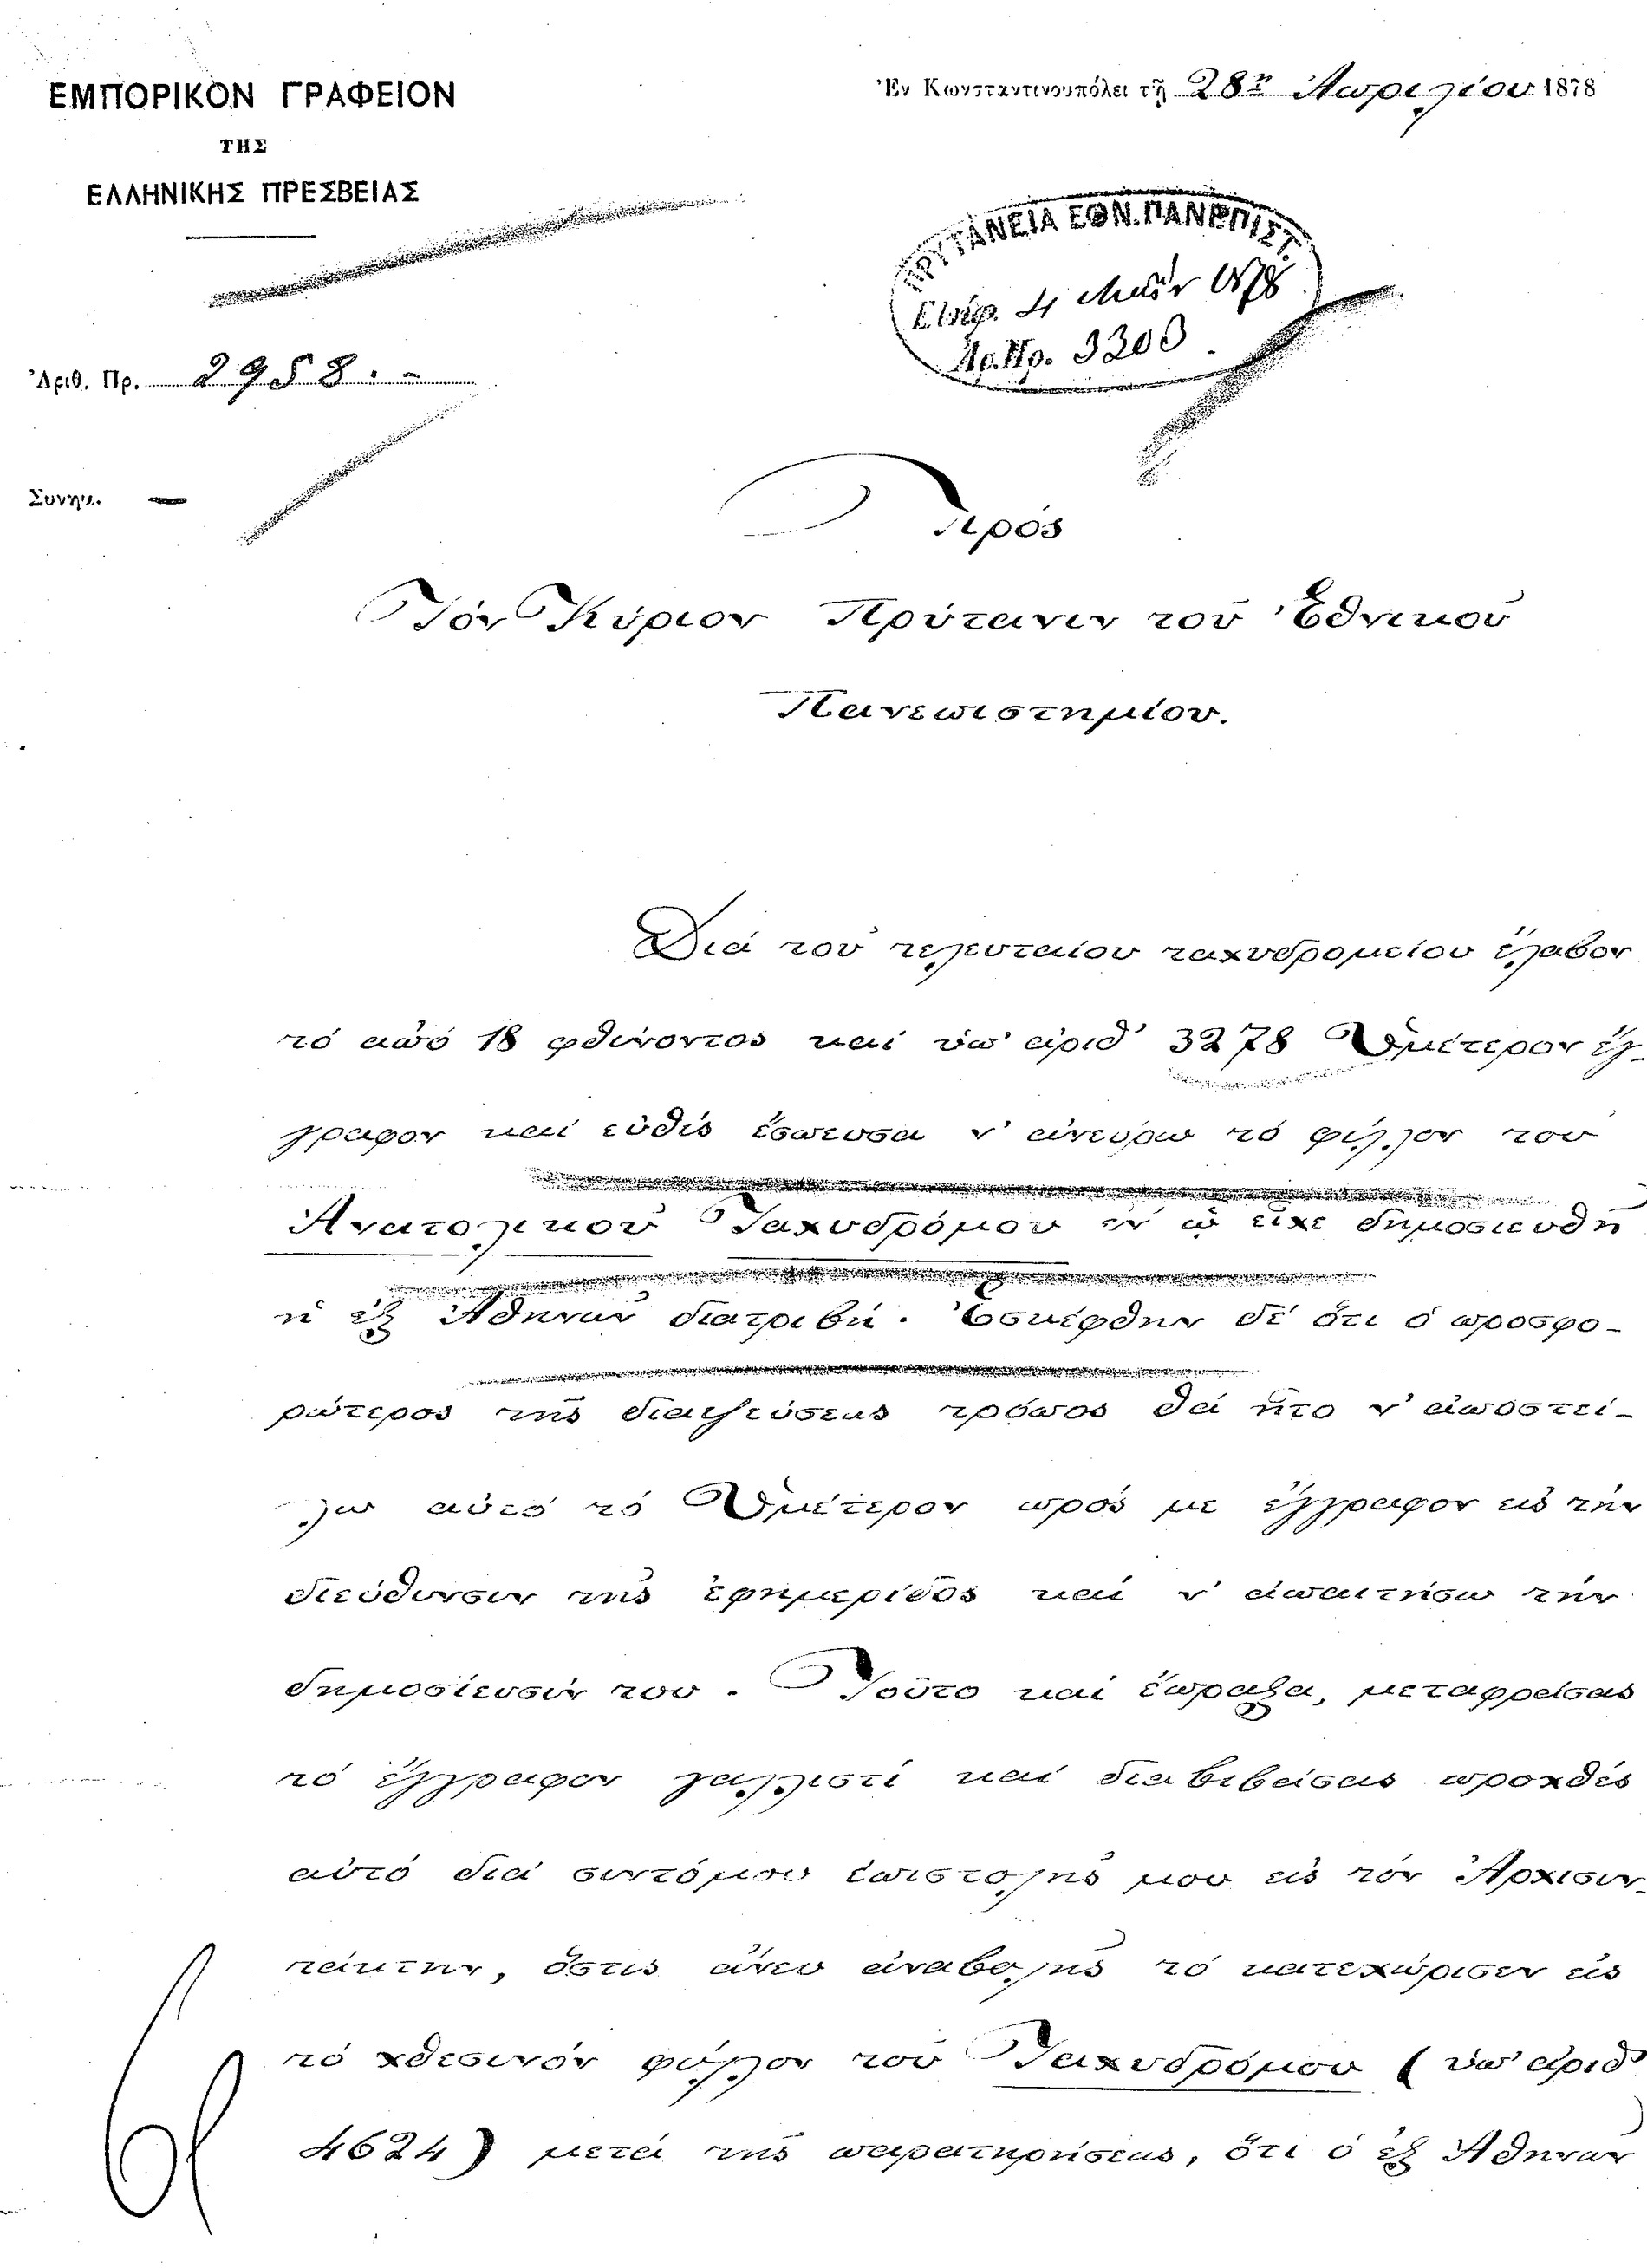 ΕΜΠΟΡΙΚΟΝ ΓΡΑΦΕΙΟΝ
ΤΗΣ
ΕΛΛΗΝΙΚΗΣ ΠΡΕΣΒΕΙΑΣ
Ἐν Κωνσταντινουπόλει τῇ 28ῃ Ἀπριλίου 1878
ΠΡΥΤΑΝΕΙΑ ΕΘΝ. ΠΑΝΕΠΙΣΤ.
4 Μαΐου 1878
Ἀρ. Πρ. 3200
Ἀριθ. Πρ. 2958. -
Συνημ. —
Πρός
Τόν Κύριον Πρύτανιν τοῦ Ἐθνικοῦ
Πανεπιστημίου.
Διά τοῦ τελευταίου ταχυδρομείου ἔλαβον
τό ἀπό 18 φθίνοντος καί ὑπ' ἀριθ' 3278 Ὑμέτερον ἔγ-
γραφον καί εὐθύς ἔσπευσα ν' ἀνεύρω τό φύλλον τοῦ
Ἀνατολικοῦ Ταχυδρόμου ἐν ᾧ εἶχε δημοσιευθῆ
ἡ ἐξ Ἀθηνῶν διατριβή. Ἐσκέφθην δέ ὅτι ὁ προσφο-
ρώτερος τῆς διαψεύσεως τρόπος θά ἦτο ν' ἀποστεί-
λω αὐτό τό Ὑμέτερον πρός με ἔγγραφον εἰς τήν
διεύθυνσιν τῆς ἐφημερίδος καί ν' ἀπαιτήσω τήν
δημοσίευσίν του. Τοῦτο καί ἔπραξα, μεταφράσας
τό ἔγγραφον γαλλιστί καί διαβιβάσας προχθές
αὐτό διά συντόμου ἐπιστολῆς μου εἰς τόν Ἀρχισυν-
τάκτην, ὅστις ἄνευ ἀναβολῆς τό κατεχώρισεν εἰς
τό χθεσινόν φύλλον τοῦ Ταχυδρόμου (ὑπ' ἀριθ'
4624) μετά τῆς παρατηρήσεως, ὅτι ὁ ἐξ Ἀθηνῶν